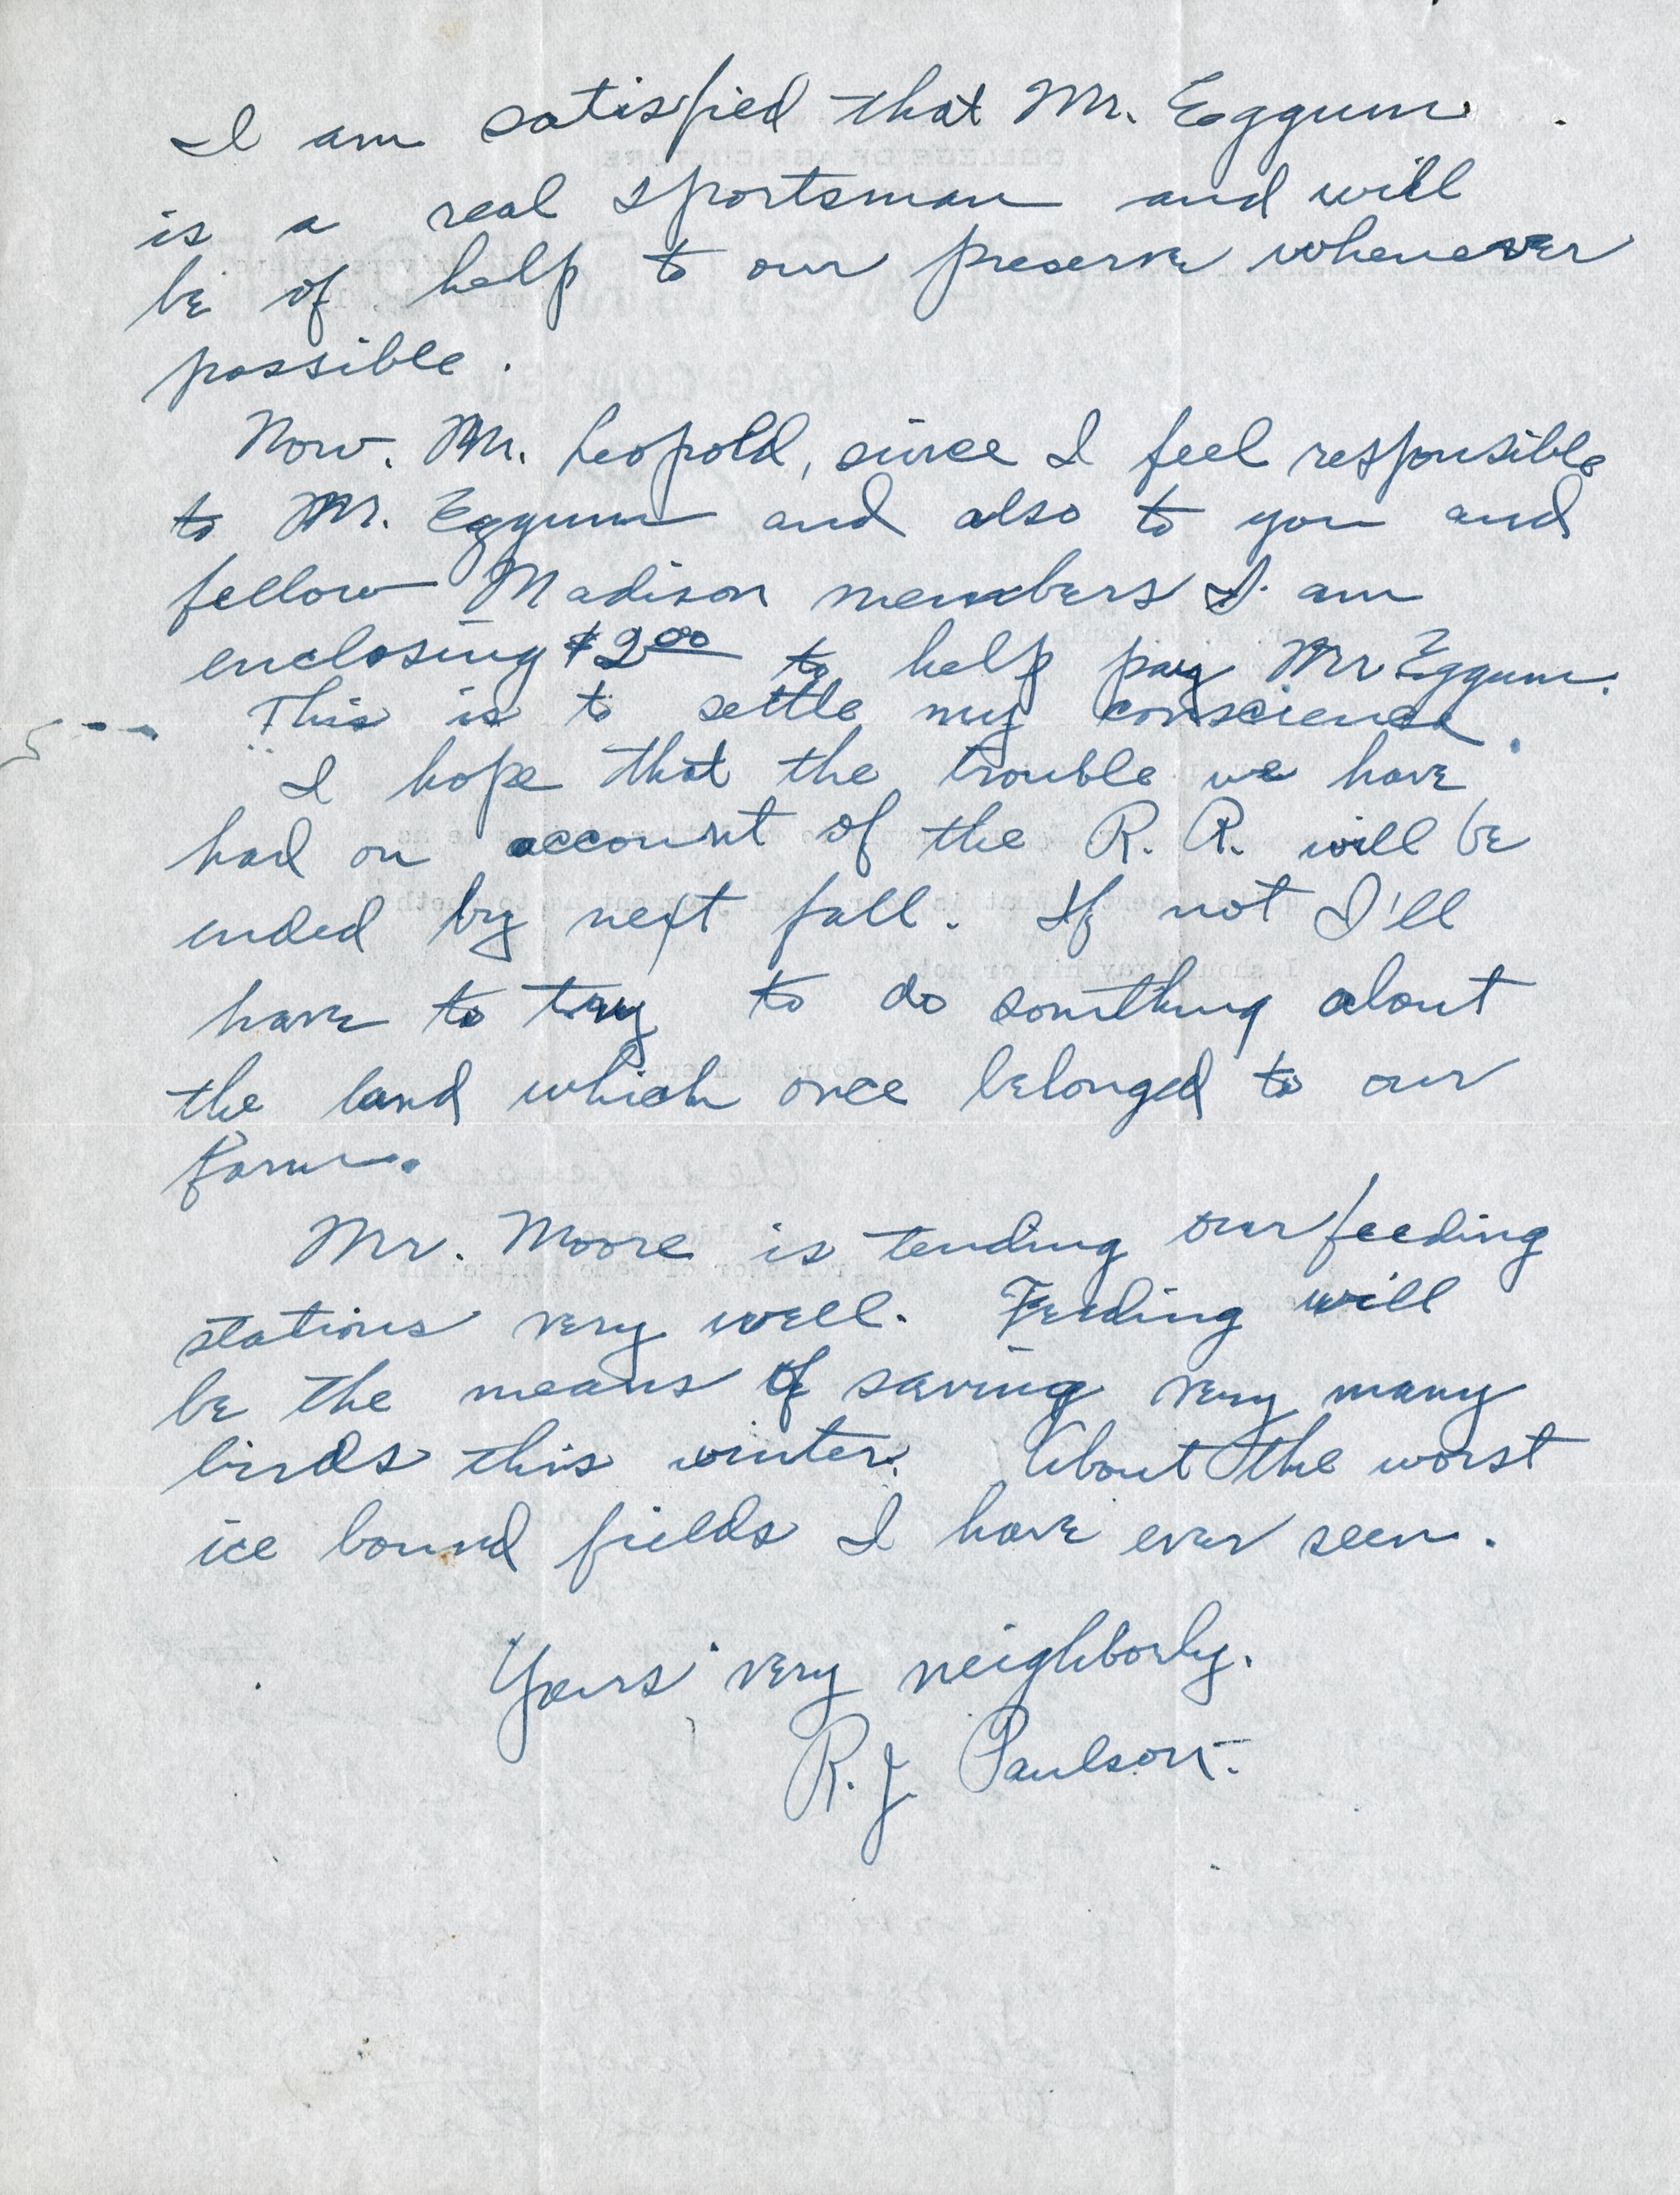 I am satisfied that Mr. Eggum
is a real sportsman and will
be of help to our preserve whenever
possible.
Now. Mr. Leopold, since I feel responsible
to Mr. Eggum and also to you and
fellow Madison members I am
enclosing $2.00 to help pay Mr Eggum.
This is to settle my conscience.
I hope that the trouble we have
had on account of the R. R. will be
ended by next fall. If not I'll
have to try to do something about
the land which once belonged to our
farm.
Mr. Moore is tending our feeding
stations very well. Feeding will
be the means of saving very many
birds this winter. About the worst
ice bound fields I have ever seen.
Yours very neighborly.
R. J. Paulson.